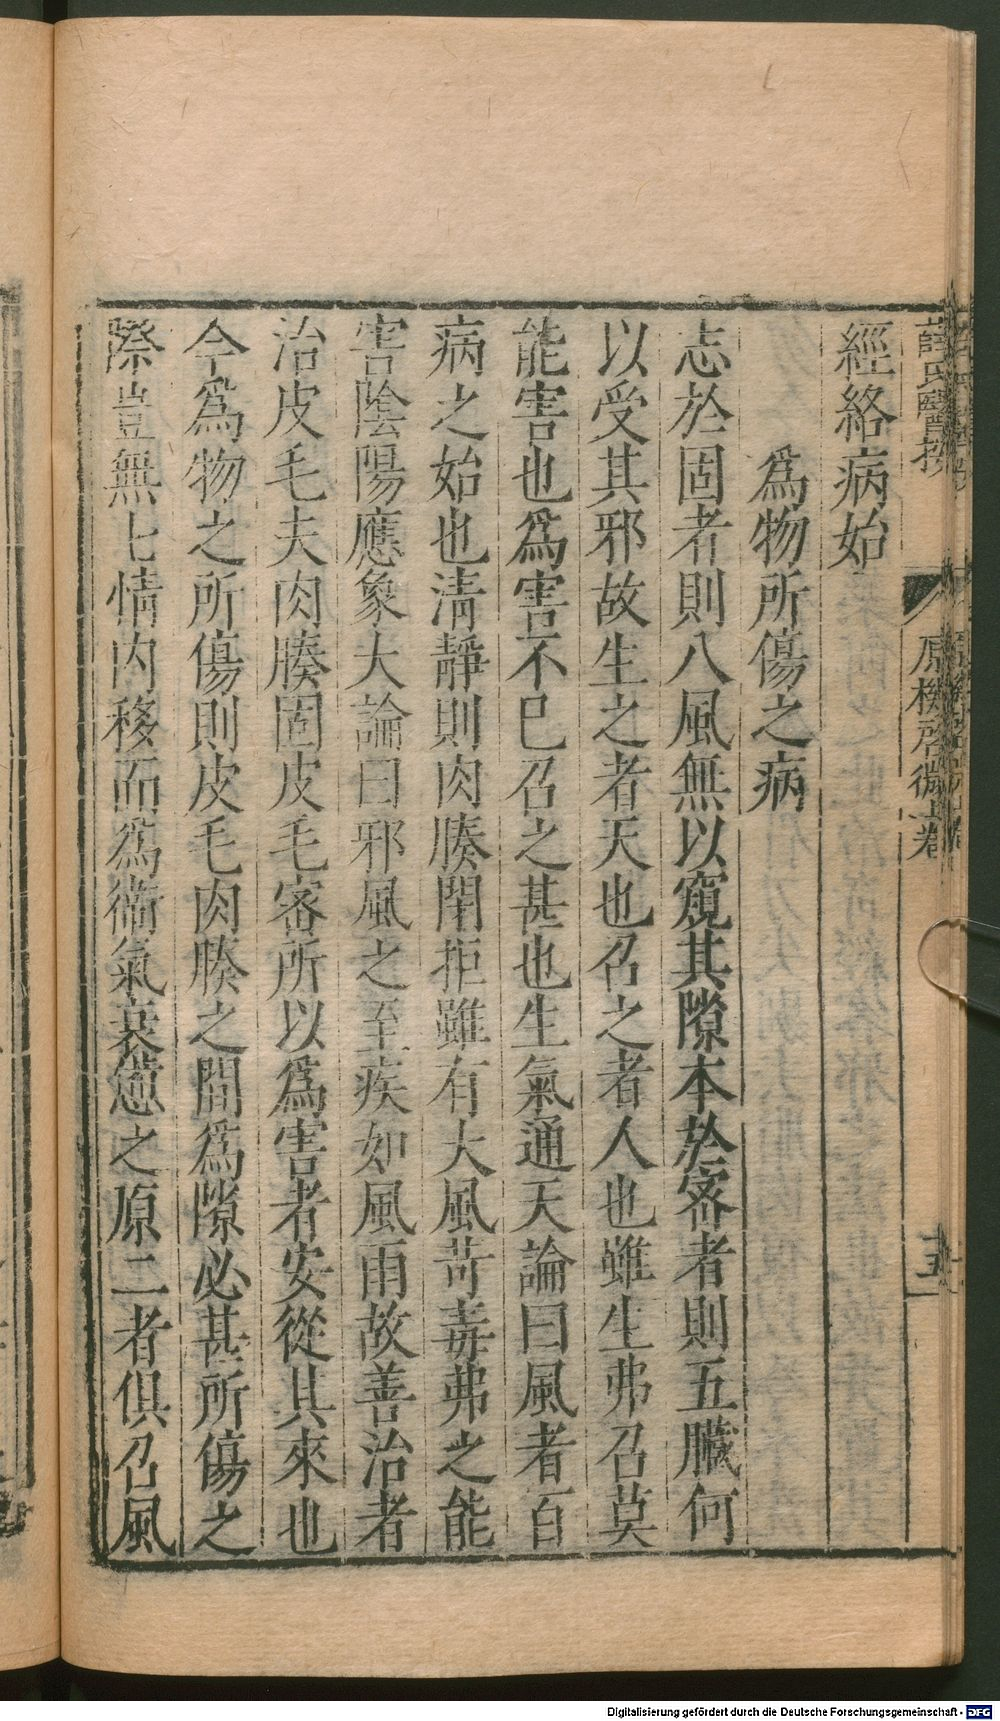 薛氏醫按
原機啓微上卷
十五
經絡病始
爲物所傷之病
志於固者則八風無以窺其隙本於密者則五臟何
以受其邪故生之者天也召之者人也雖生弗召莫
能害也爲害不已召之甚也生氣通天論曰風者百
病之始也淸靜則肉腠閉拒雖有大風苛毒弗之能
害陰陽應象大論曰邪風之至疾如風雨故善治者
治皮毛夫肉腠固皮毛密所以爲害者安從其來也
今爲物之所傷則皮毛肉腠之間爲隙必甚所傷之
際豈無七情內移而爲衞氣衰憊之原二者俱召風
Digitalisierung gefördert durch die Deutsche Forschungsgemeinschaft - DFG